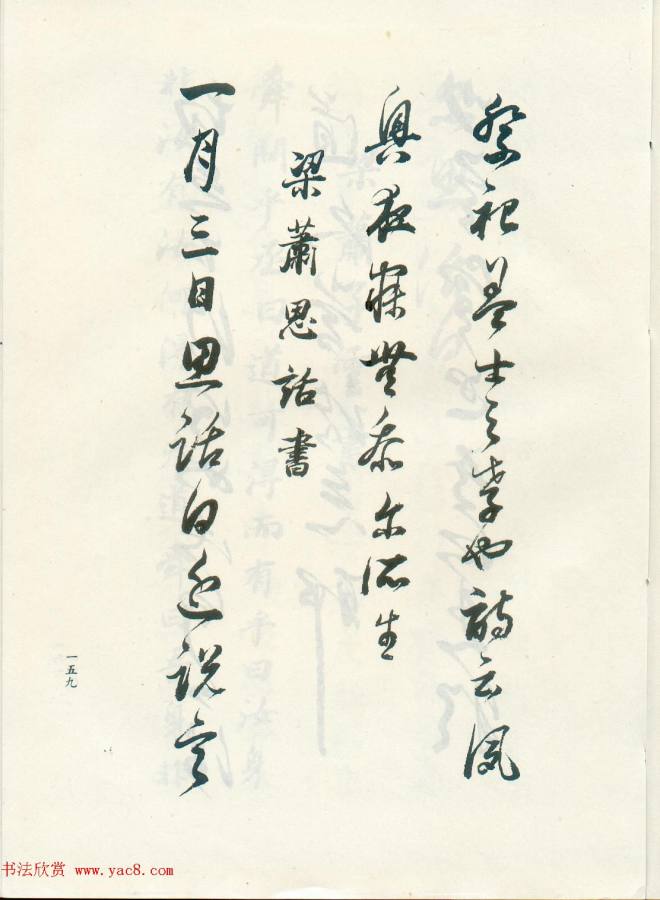 祭祀盖士之孝也詩云夙
興夜寐無忝尔所生
梁蕭思話書
一月三日思話白近説
一五九
书法欣赏 www.yac8.com